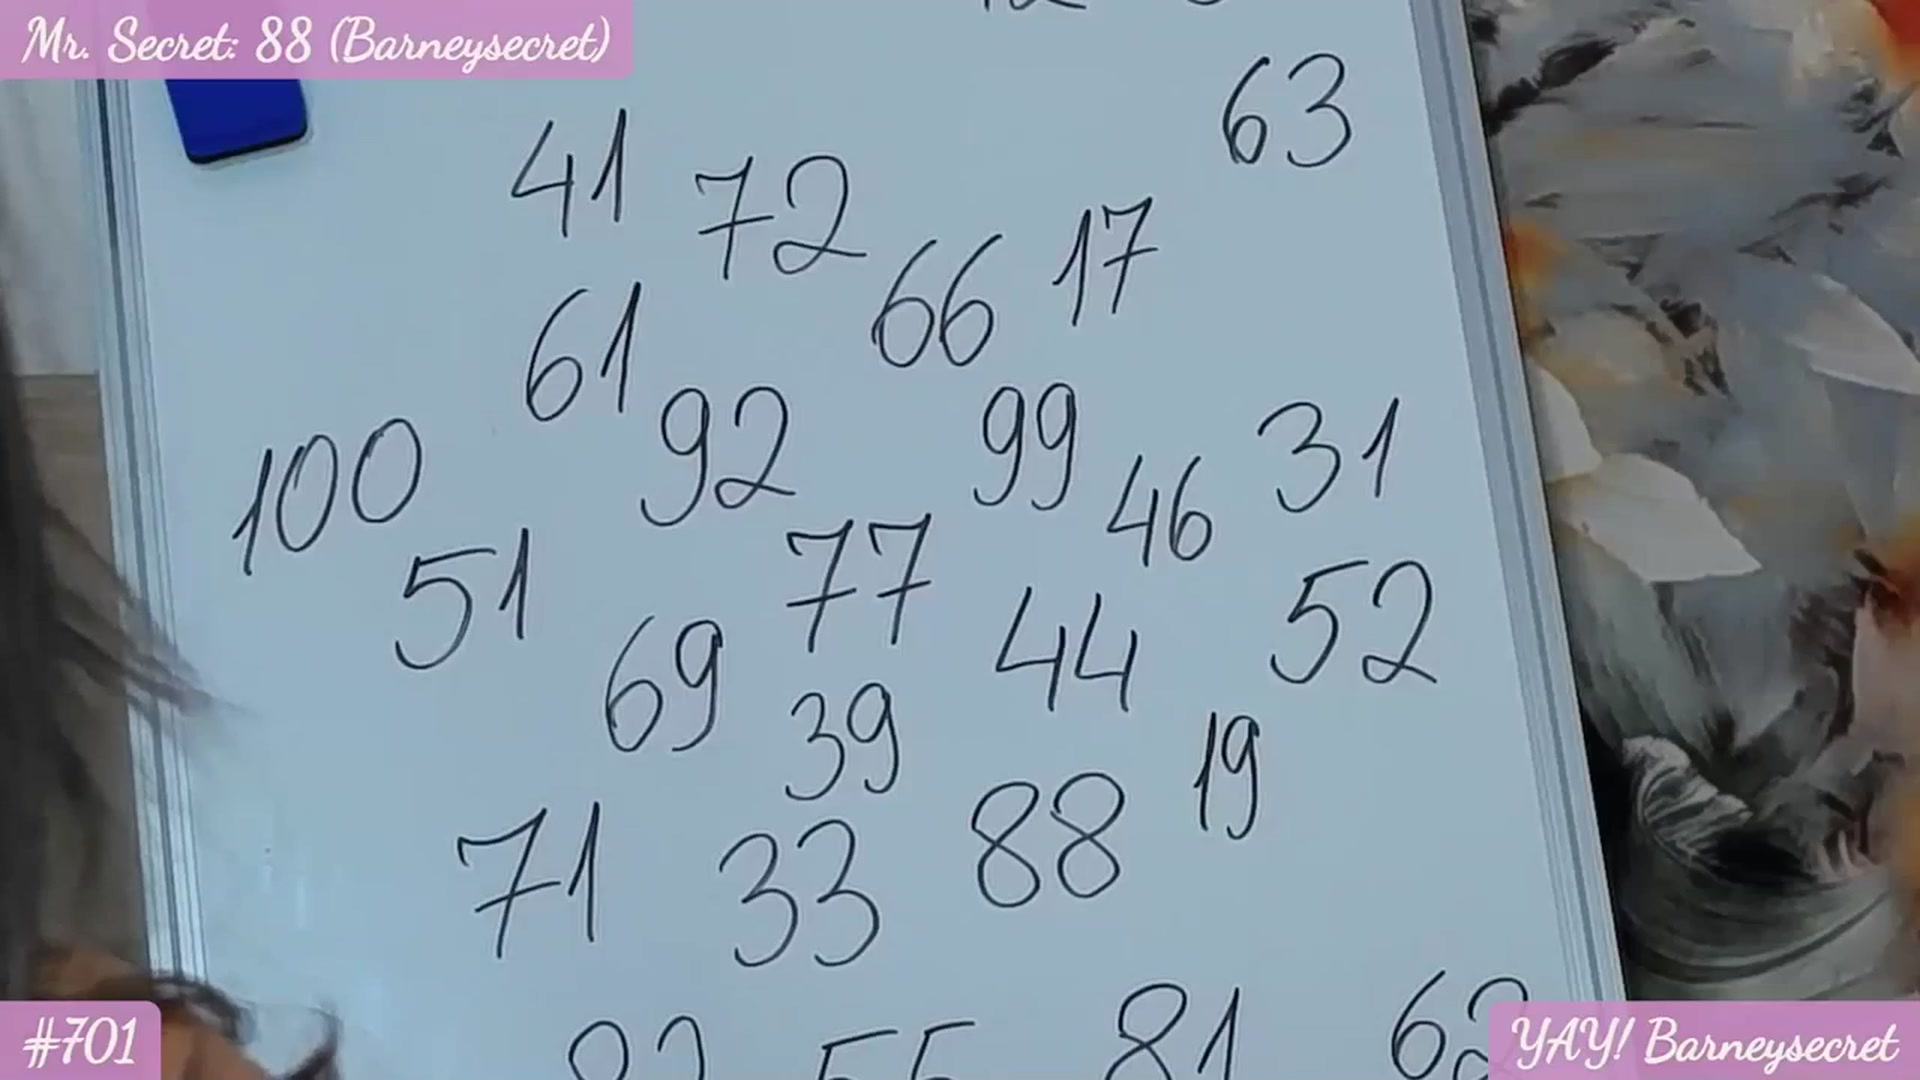 Mr. Secret: 88 (Barneysecret)
63
41 72
66 17
61
92 99 31
100 46
51 77 52
69 44
39 19
71 33 88
81 62
55
#701
YAY! Barneysecret